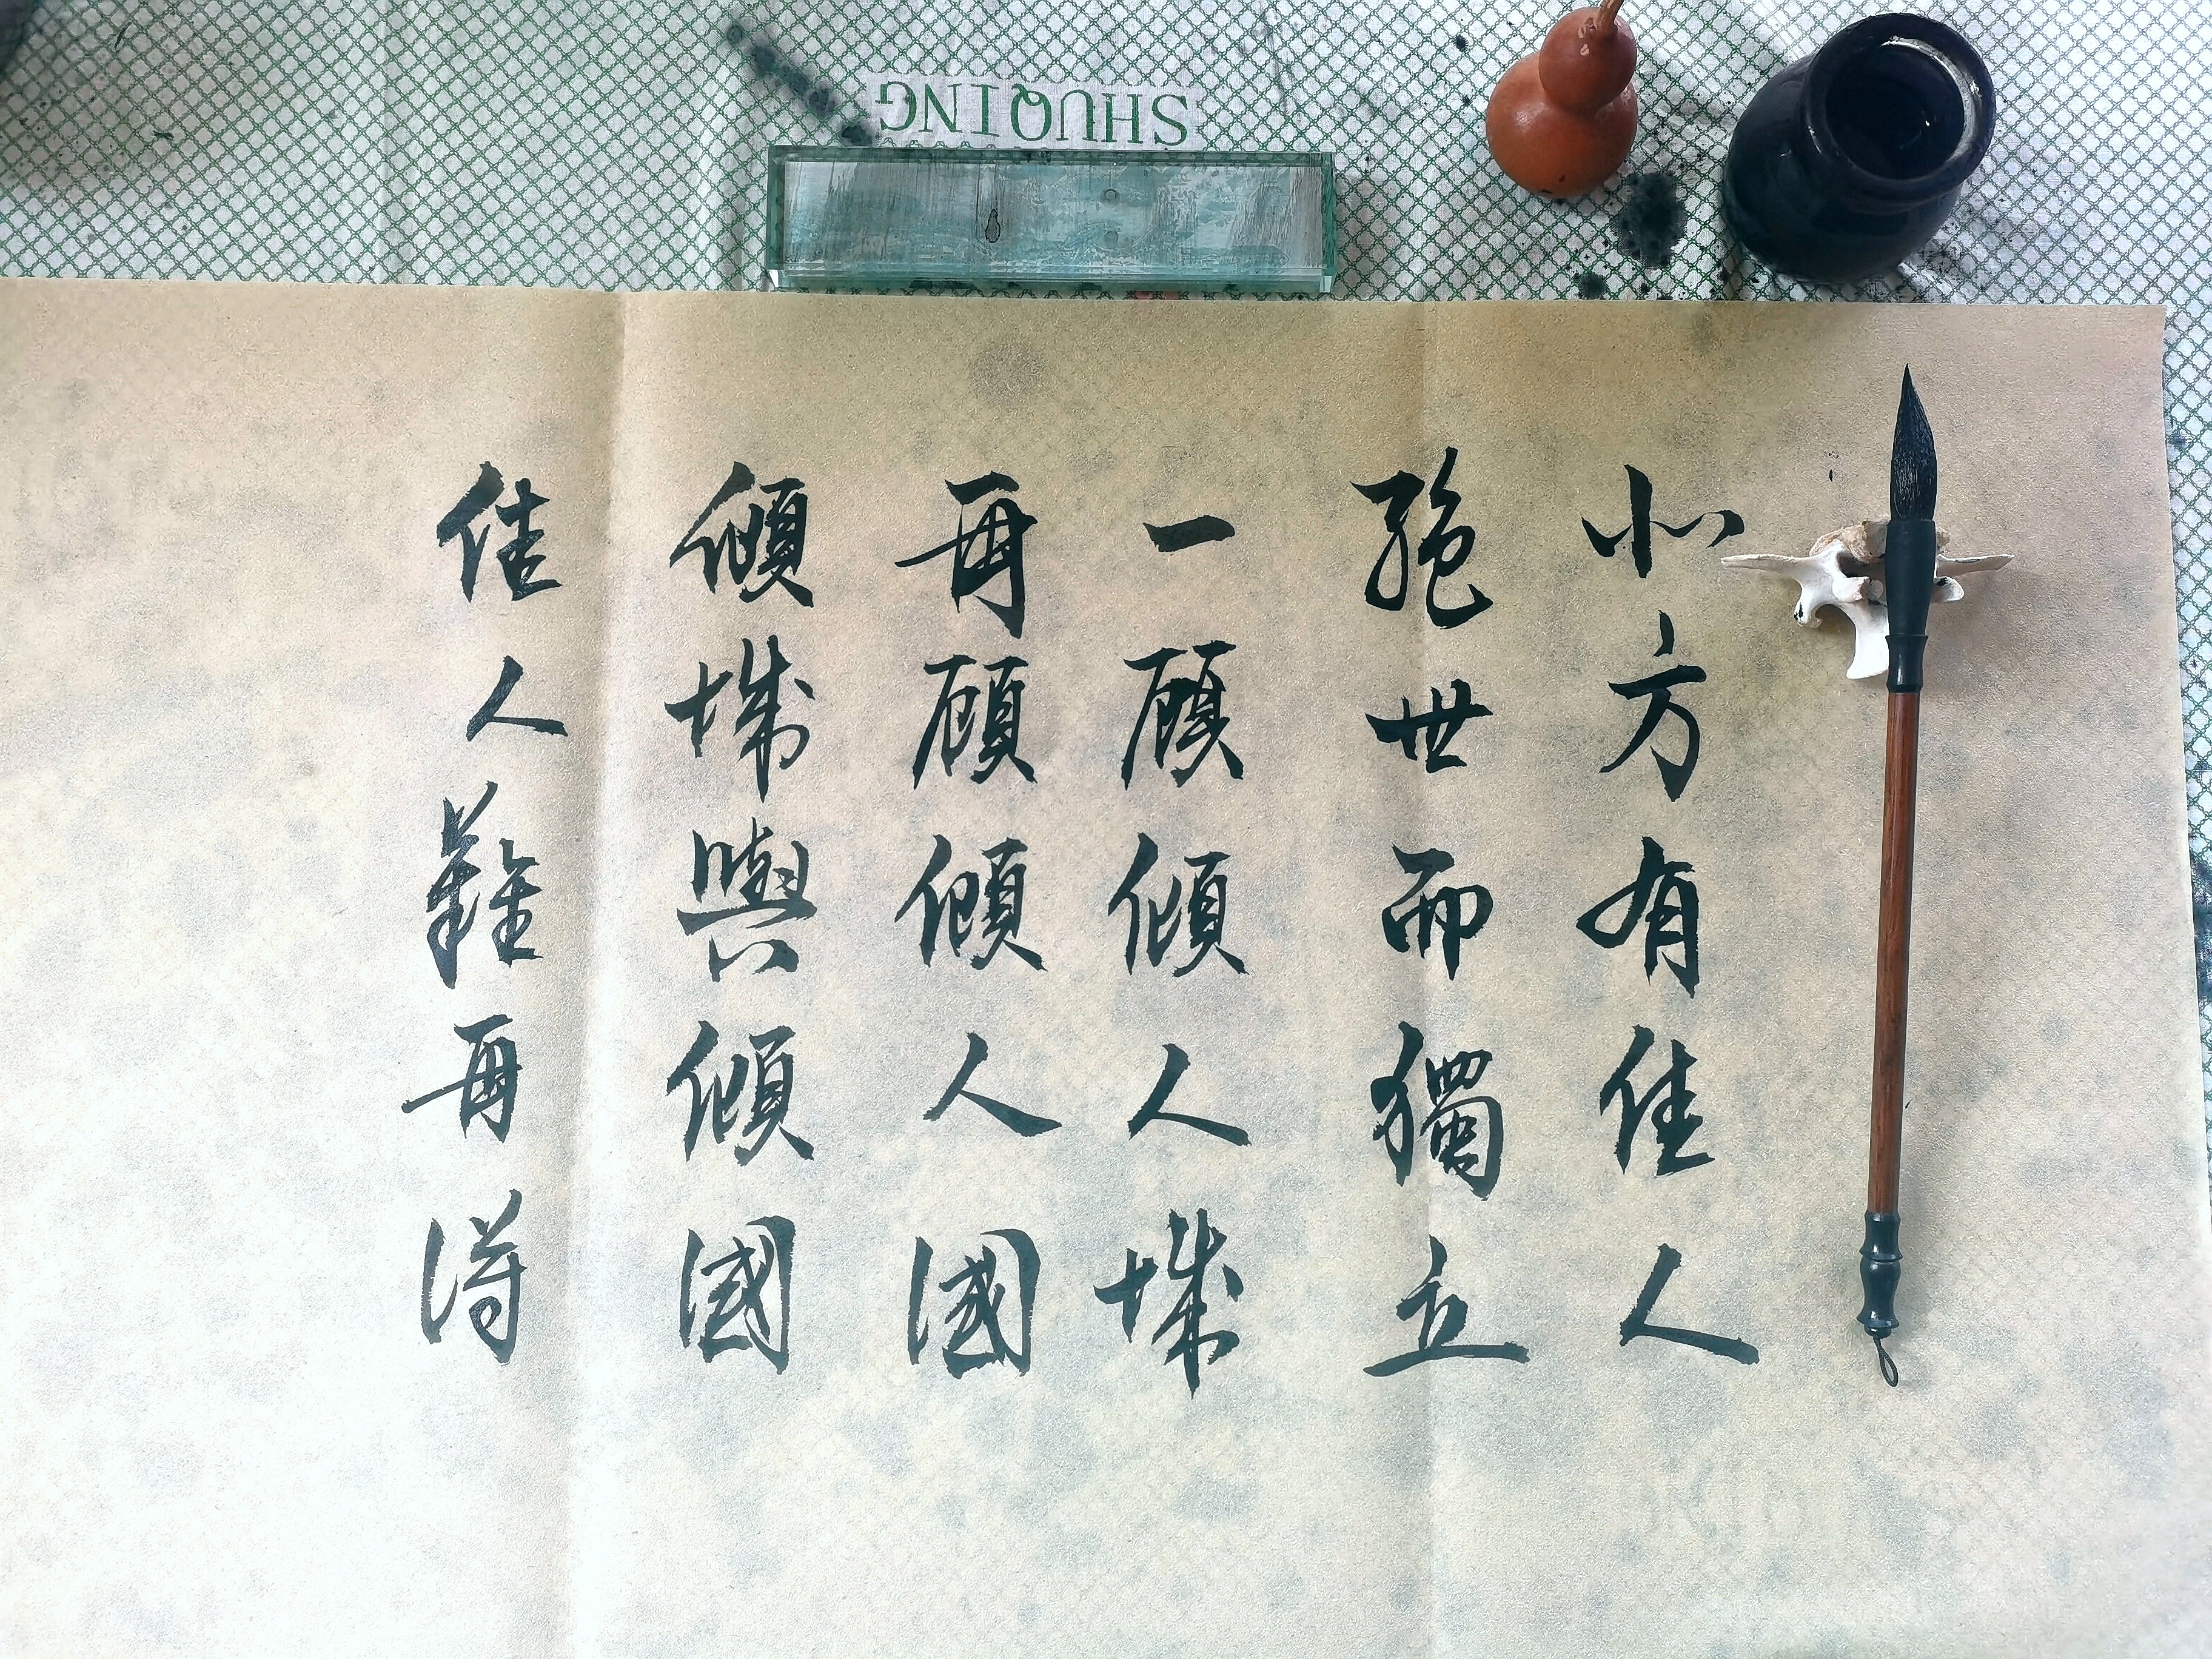 北方有佳人
絕世而獨立
一顧傾人城
再顧傾人國
傾城與傾國
佳人難再得
SHUQING